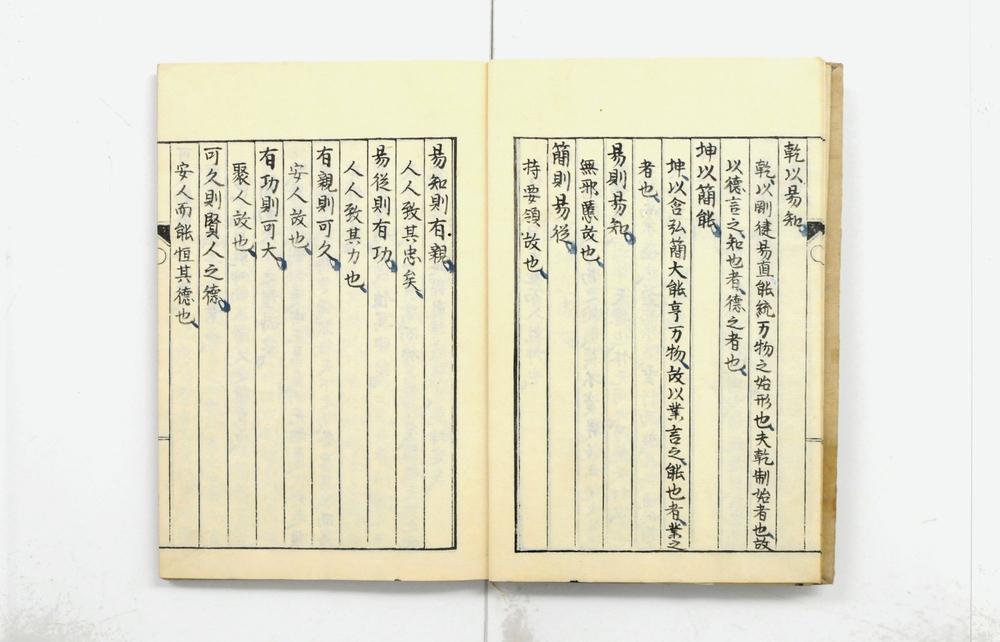 乾以易知
乾以剛健易直能統万物之始形也夫乾制始者也故
以德言之知也者德之者也
坤以簡能
坤以含弘簡大能亨万物故以業言之能也者業之
者也
易則易知
無邪慝故也
簡則易從
持要領故也
易知則有親
人人致其忠矣
易從則有功
人人致其力也
有親則可久
安人故也
有功則可大
聚人故也
可久則賢人之德
安人而能恒其德也